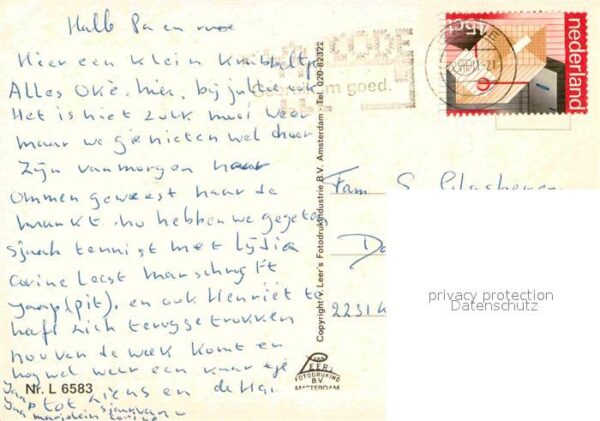 Hallo Pa en moe
Hier een klein krabbeltje
Alles Oké. hier, bij jullie ook
Het is niet zulk mooi weer
maar we genieten wel hoor
Zijn vanmorgen naar
Ommen geweest naar de
markt. nu hebben we gegeten
sjaak tennist met Lydia
Corine leest
Jaap (pit), en ook Henriët te
heeft zich teruggetrokken
nou van de week komt en
nog wel weer een kaartje
tot ziens en de
Jaap
sjaak
marjolein Corine
Nr. L 6583
Copyright v. Leer's Fotodrukindustrie B.V. Amsterdam - Tel. 020-82322
VAN
LEER'S
FOTODRUKIND
B.V.
AMSTERDAM
CODE
goed.
nederland
Fam S.
2231
privacy protection
Datenschutz